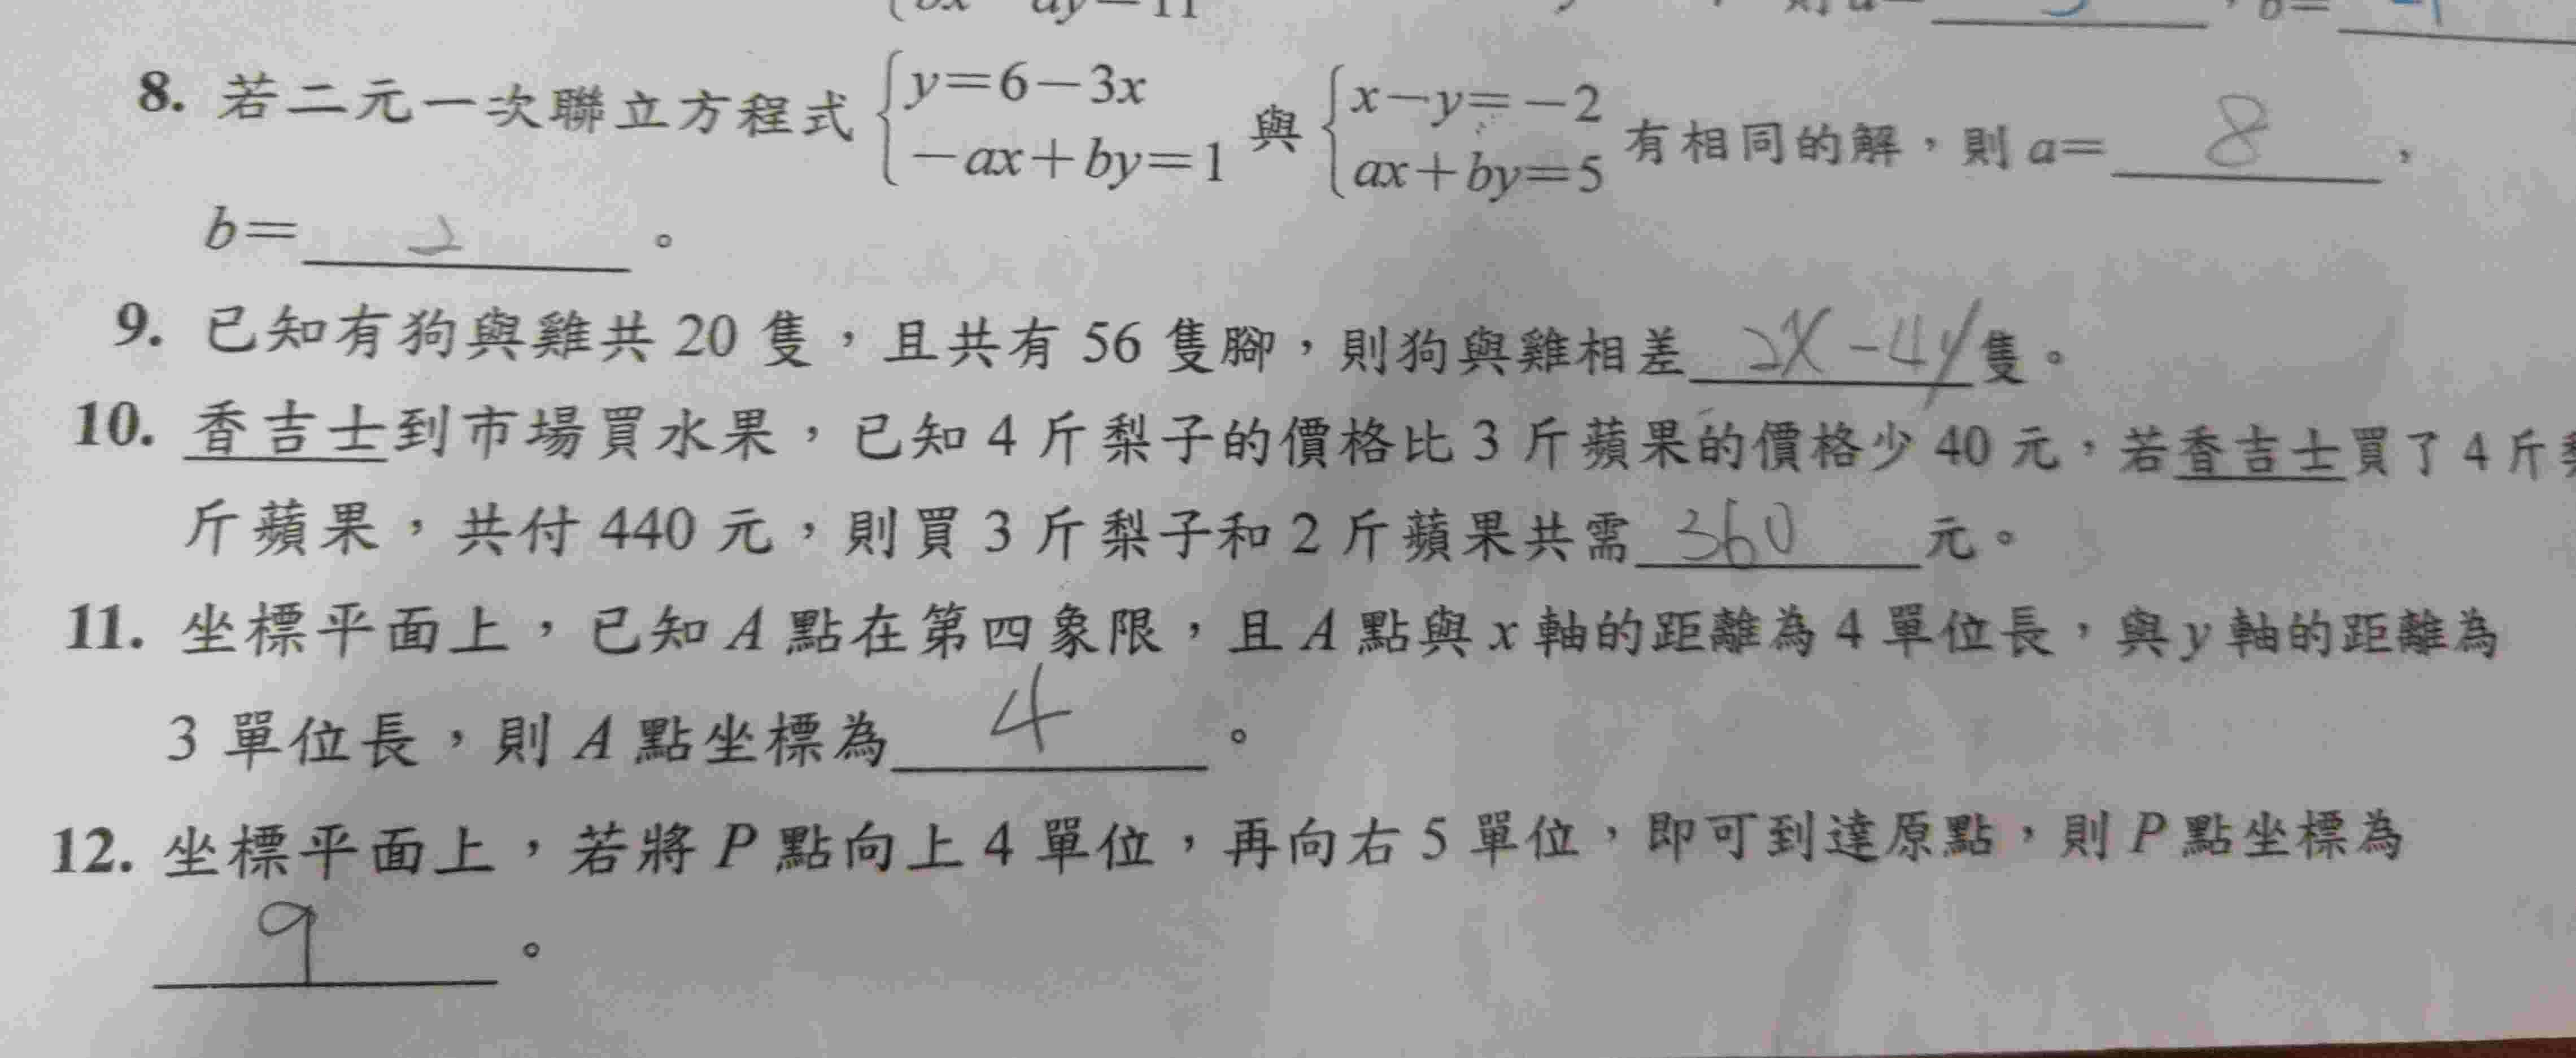 8. 若二元一次聯立方程式 { y=6-3x
-ax+by=1 與 { x-y=-2
ax+by=5 有相同的解，則 a= 8 ，
b= 2 。
9. 已知有狗與雞共 20 隻，且共有 56 隻腳，則狗與雞相差 2x-4y 隻。
10. 香吉士到市場買水果，已知 4 斤梨子的價格比 3 斤蘋果的價格少 40 元，若香吉士買了 4 斤
斤蘋果，共付 440 元，則買 3 斤梨子和 2 斤蘋果共需 360 元。
11. 坐標平面上，已知 A 點在第四象限，且 A 點與 x 軸的距離為 4 單位長，與 y 軸的距離為
3 單位長，則 A 點坐標為 4 。
12. 坐標平面上，若將 P 點向上 4 單位，再向右 5 單位，即可到達原點，則 P 點坐標為
9 。